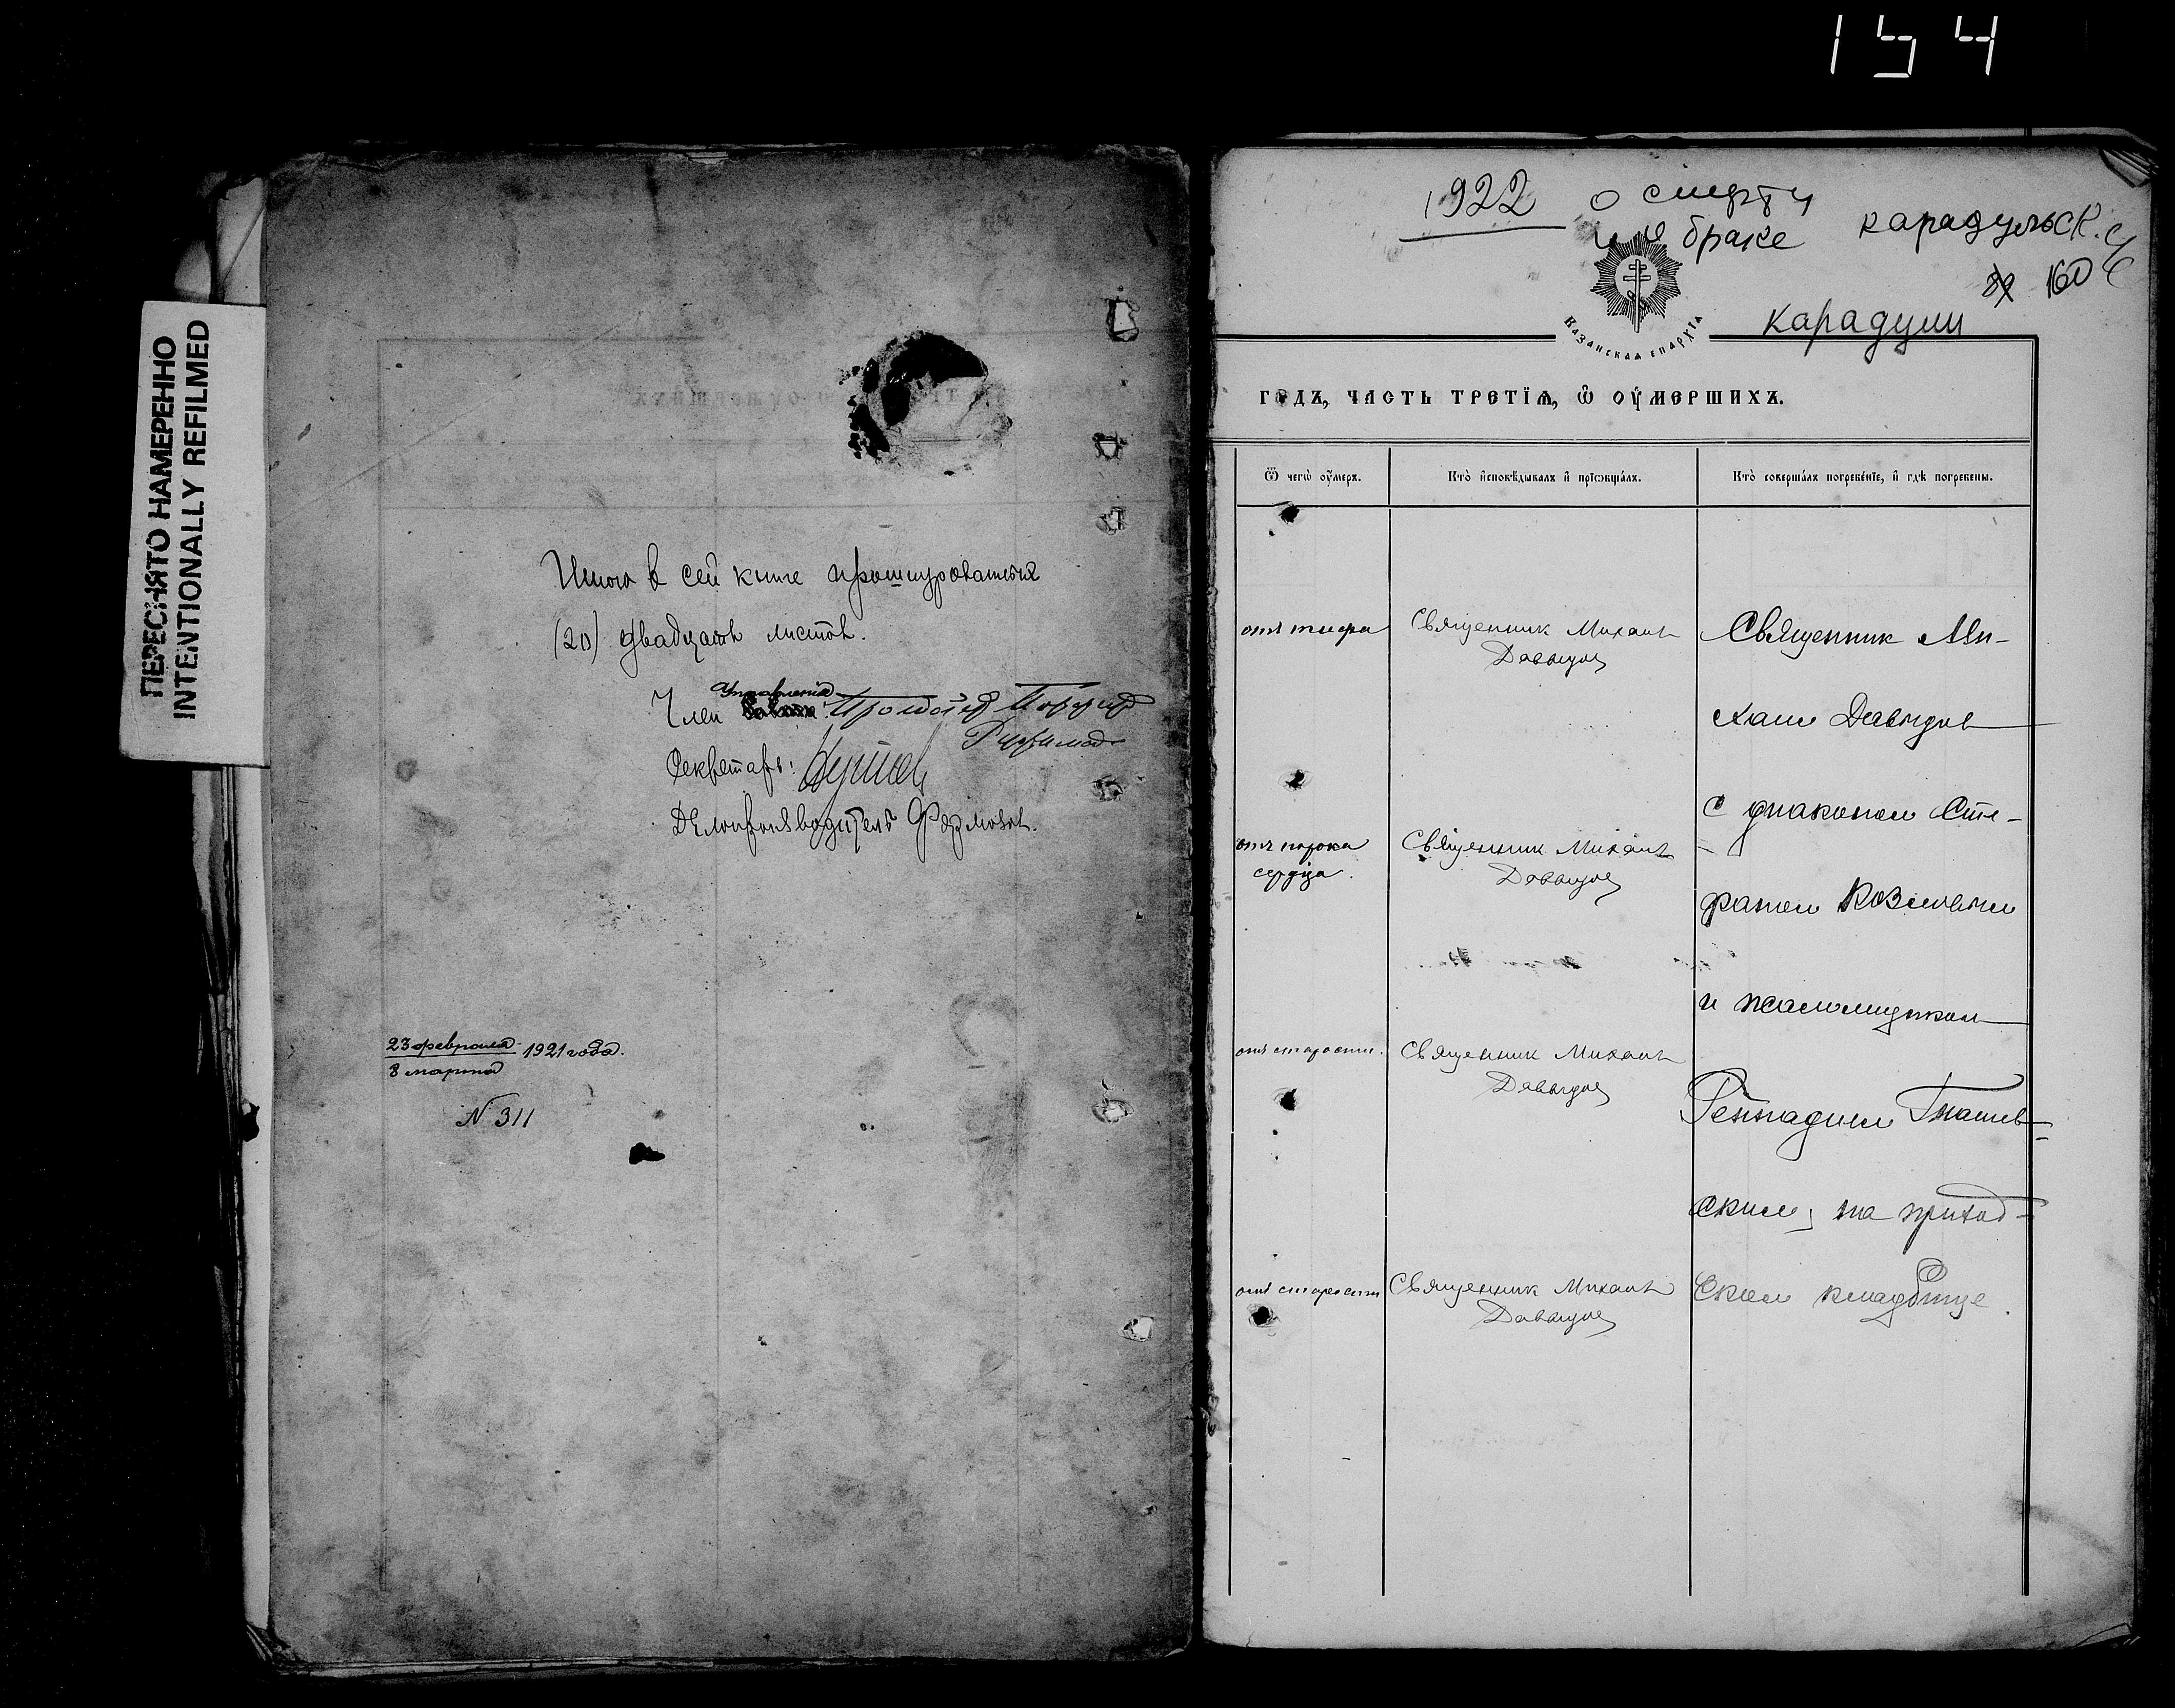 154
ПЕРЕСНЯТО НАМЕРЕННО
INTENTIONALLY REFILMED
Итого в сей книге прошнурованных
(20) двадцать листов.
Член Управления Протоіер Порфир
Руфимов
Секретарь:
Делопроизводитель Фармовов.
23 февраля 1921 года.
8 марта
N 311
1922 о смерти
и о браке
карадульск. ц
160
карадули
Казанская епархїѧ
Годъ, часть третїѧ, ѡ оумершихъ.
Ѿ чегѡ оумеръ.
Кто исповѣдывалъ и прїѡбщалъ.
Кто совершалъ погребенїе, и гдѣ погребены.
отъ тифа
Священник Михаил
Давыдов
Священник Ми-
хаил Давыдов
с диаконом Сте-
фаном Козловым
и псаломщиком
Геннадием Гнатев-
ским, на приход-
ском кладбище.
отъ порока
сердца.
Священник Михаил
Давыдов
отъ старости.
Священник Михаил
Давыдов
отъ старости
Священник Михаил
Давыдов